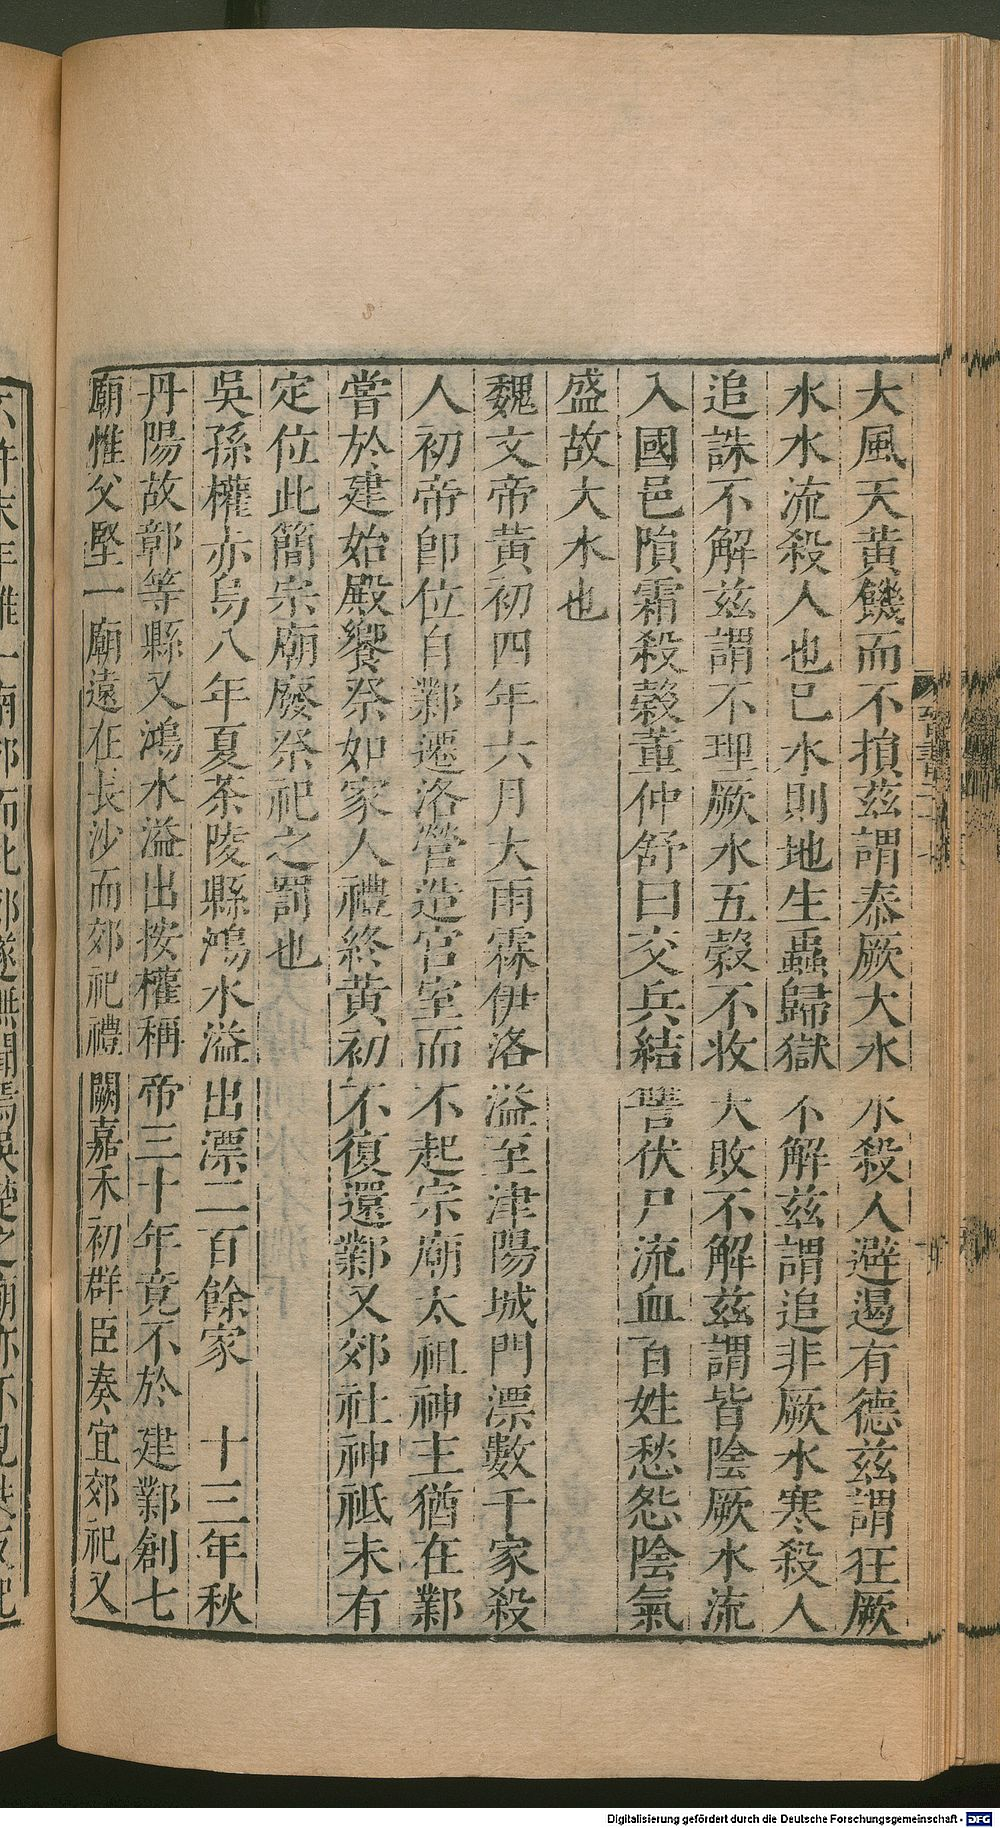 大風天黃饑而不損茲謂泰厥大水水殺人避遏有德茲謂狂厥
水水流殺人也已水則地生蟲歸獄不解茲謂追非厥水寒殺人
追誅不解茲謂不理厥水五穀不收大敗不解茲謂皆陰厥水流
入國邑隕霜殺穀董仲舒曰交兵結讐伏尸流血百姓愁怨陰氣
盛故大水也
魏文帝黃初四年六月大雨霖伊洛溢至津陽城門漂數千家殺
人初帝卽位自鄴遷洛營造宮室而不起宗廟太祖神主猶在鄴
嘗於建始殿饗祭如家人禮終黃初不復還鄴又郊社神祇未有
定位此簡宗廟廢祭祀之罰也
吳孫權亦烏八年夏茶陵縣鴻水溢出漂二百餘家 十三年秋
丹陽故鄣等縣又鴻水溢出按權稱帝三十年竟不於建鄴創七
廟惟父堅一廟遠在長沙而郊祀禮闕嘉禾初群臣奏宜郊祀又
Digitalisierung gefördert durch die Deutsche Forschungsgemeinschaft - DFG